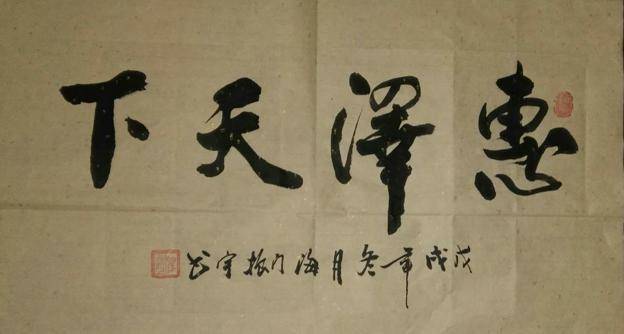 惠澤天下
戊戌年冬月海门振宇书